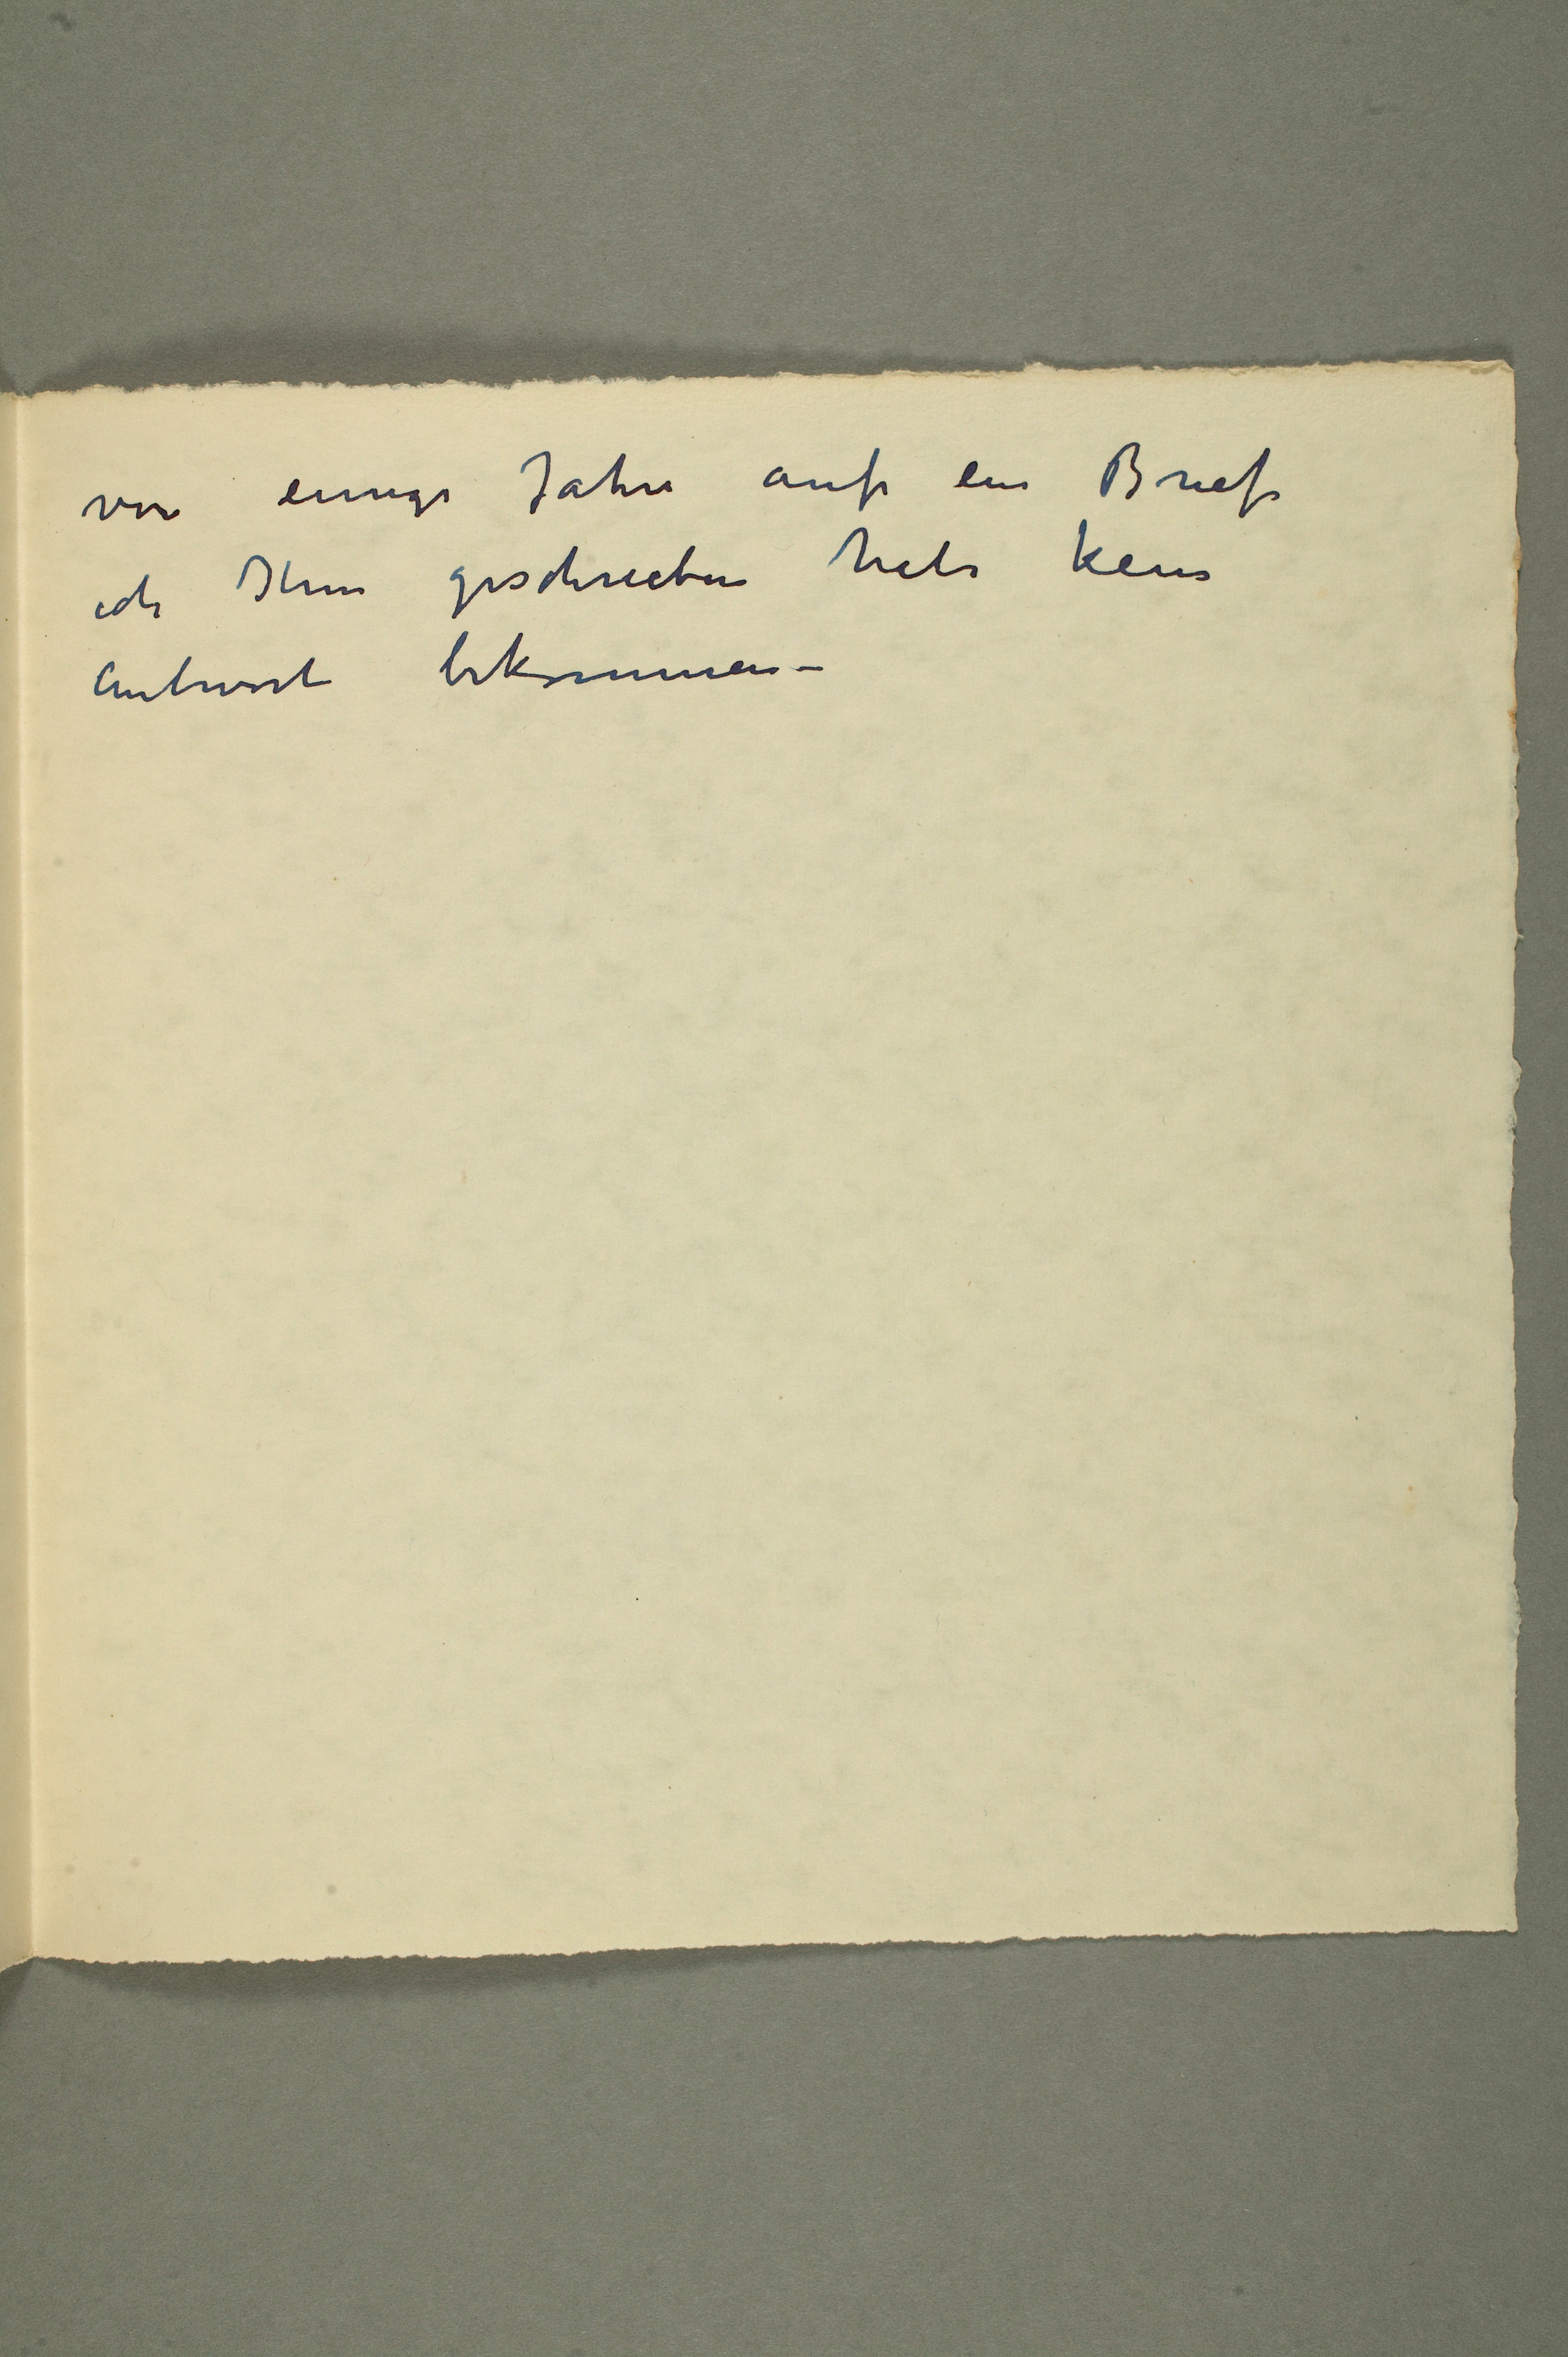 vor einige Jahre auf ein Brief
ich Ihnen geschrieben habe keine
Antwort bekommen –